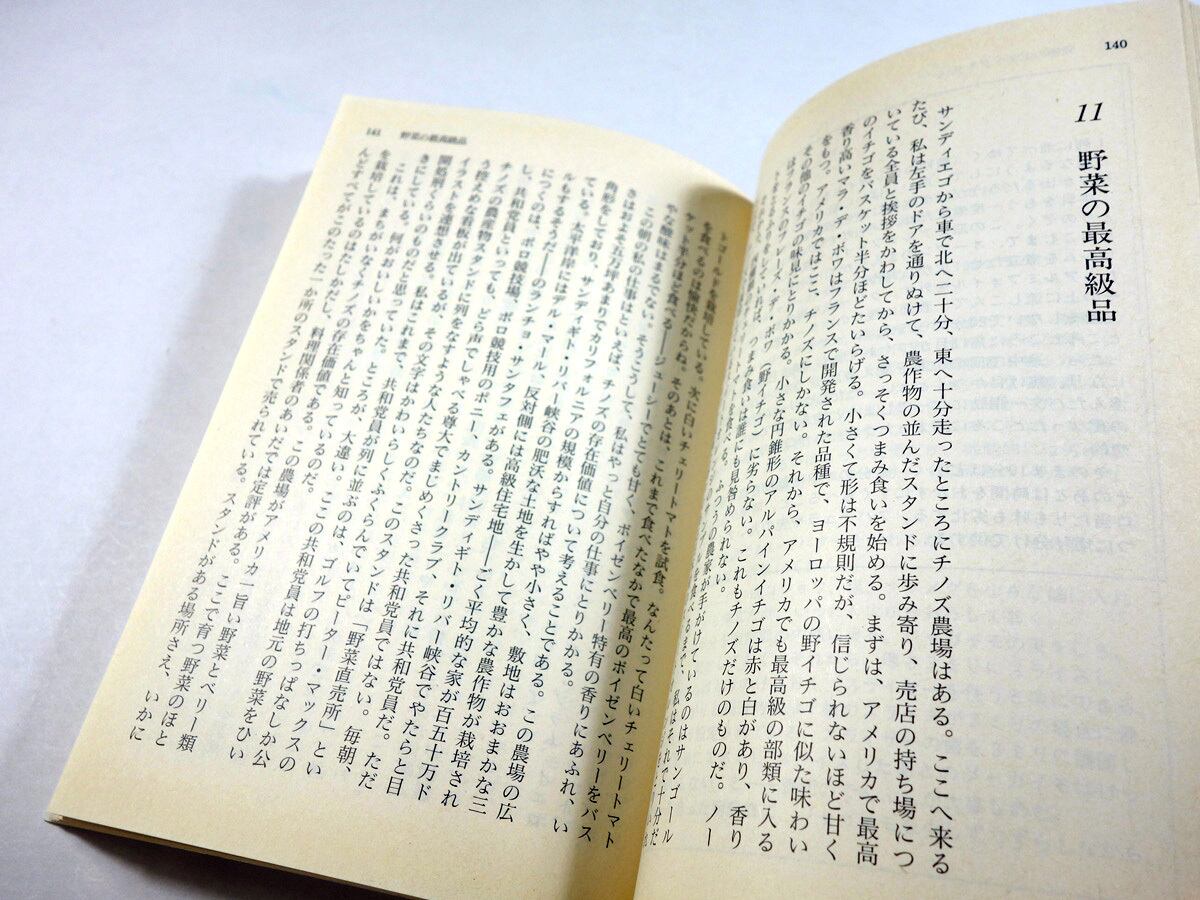 140
11 野菜の最高級品
サンディエゴから車で北へ二十分、東へ十分走ったところにチノズ農場はある。ここへ来る
たび、私は左手のドアを通りぬけて、農作物の並んだスタンドに歩み寄り、売店の持ち場につ
いている全員と挨拶をかわしてから、さっそくつまみ食いを始める。まずは、アメリカで最高
のイチゴをバスケット半分ほどたいらげる。小さくて形は不規則だが、信じられないほど甘く
香り高いマラ・デ・ボワはフランスで開発された品種で、ヨーロッパの野イチゴに似た味わい
をもつ。アメリカではここ、チノズにしかない。それから、アメリカでも最高級の部類に入る
その他のイチゴの味見にとりかかる。小さな円錐形のアルパインイチゴは赤と白があり、香り
はフランスのフレーズ・デ・ボワ(野イチゴ)に劣らない。これもチノズだけのものだ。ノー
つまみ食いは誰にも見咎められない。
トマトを食べる。ふつうの農家が手がけているのはサンゴール
を食べるまで、私はそれで十分だ
141 野菜の最高級品
トゴールドを栽培している。次に白いチェリートマトを試食。なんたって白いチェリートマト
を食べるのは愉快だからね。そのあとは、これまで食べたなかで最高のボイゼンベリーをバス
ケット半分ほど食べる――ジューシーでとても甘く、ボイゼンベリー特有の香りにあふれ、い
やな酸味はまるでない。そうこうして、私はやっと自分の仕事にとりかかる。
この朝の私の仕事はといえば、チノズの存在価値について考えることである。この農場の広
さはおよそ五万坪あまりでカリフォルニアの規模からすればやや小さく、敷地はおおまかな三
角形をしており、サンディギト・リバー峡谷の肥沃な土地を生かして豊かな農作物が栽培され
ている。太平洋岸にはデル・マール、反対側には高級住宅地――ごく平均的な家が百五十万ド
ルもするそうだ――のランチョ・サンタフェがある。サンディギト・リバー峡谷でやたらと目
につくのは、ポロ競技場、ポロ競技用のポニー、カントリークラブ、それに共和党員だ。ただ
し、共和党員といっても、どら声でしゃべる尊大でまじめくさった共和党員ではない。毎朝、
チノズの農作物スタンドに列をなすような人たちなのだ。このスタンドは「野菜直売所」とい
う控えめな看板が出ているが、その文字はかわいらしくふくらんでいてピーター・マックスの
イラストを連想させる。私はこれまで、共和党員が列に並ぶのは、ゴルフの打ちっぱなしか公
開処刑ぐらいのものだと思っていた。ところが、大違い。ここの共和党員は地元の野菜をひい
きにしている。何がおいしいかをちゃんと知っているのだ。
これは、まちがいなくチノズの存在価値である。この農場がアメリカ一旨い野菜とベリー類
を栽培しているのはたしかだし、料理関係者のあいだでは定評がある。ここで育つ野菜のほと
んどすべてがこのたった一か所のスタンドで売られている。スタンドがある場所さえ、いかに